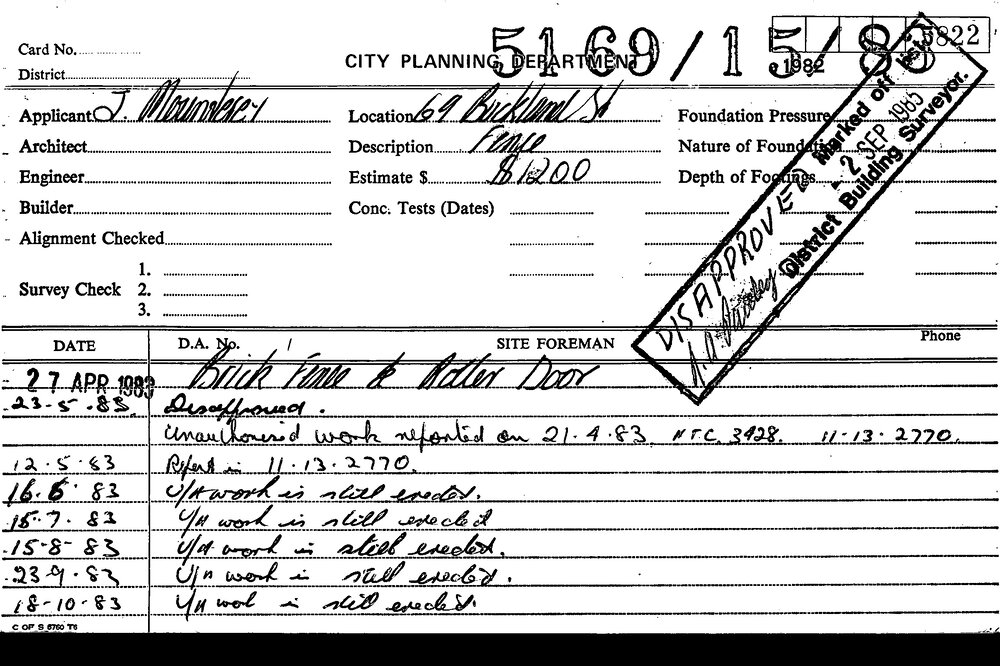 5169/15/83
5822
1982
Card No.
CITY PLANNING DEPARTMENT
District
Applicant J.
Location 69 Buckland St
Foundation Pressure
Architect
Description Fence
Nature of Foundations
Engineer
Estimate $ $1200
Depth of Footings
Builder
Conc. Tests (Dates)
Alignment Checked
1.
Survey Check 2.
3.
DISAPPROVED Marked off list
- 2 SEP 1985
District Building Surveyor.
DATE D.A. No. / SITE FOREMAN Phone
27 APR 1983 Brick Fence & Roller Door
23-5-83 Disapproved.
Unauthorised work reported on 21.4.83. NTC. 3428. 11-13-2770.
12.5.83 Report in 11.13.2770.
16.6.83 U/A work is still erected.
15.7.83 U/A work is still erected
15-8-83 U/A work is still erected.
23.9.83 U/A work is still erected.
18-10-83 U/A work is still erected.
C OF S 6760 T6